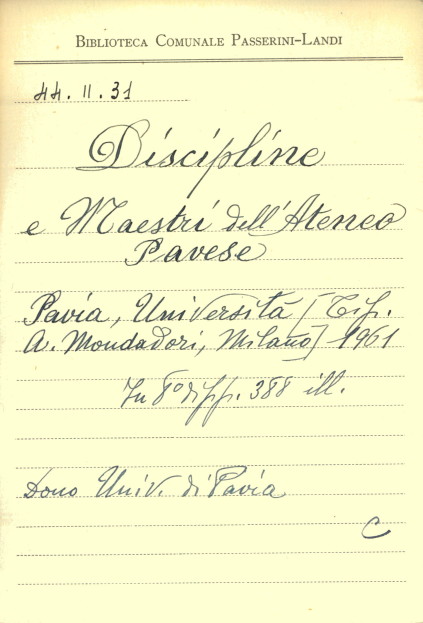 BIBLIOTECA COMUNALE PASSERINI-LANDI
44. II. 31
Discipline
e Maestri dell'Ateneo
Pavese
Pavia, Università [Tip.
A. Mondadori, Milano] 1961
In 8° di pp. 388 ill.
Dono Univ. di Pavia
C